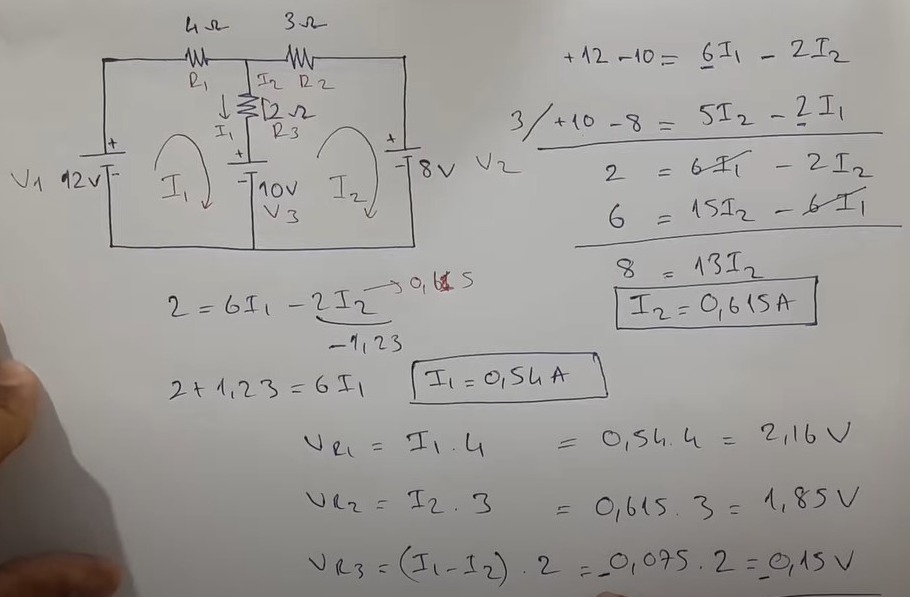 4Ω 3Ω
R1 I2 R2
I1 2Ω
R3
+ + +
V1 12V - I1 - 10V I2 - 8V V2
V3
+12 -10 = 6I1 - 2I2
3/ +10 - 8 = 5I2 - 2I1
2 = 6I1 - 2I2
6 = 15I2 - 6I1
8 = 13I2
I2 = 0,615A
2 = 6I1 - 2I2 → 0,615
-1,23
2 + 1,23 = 6I1 I1 = 0,54A
VR1 = I1 . 4 = 0,54.4 = 2,16V
VR2 = I2 . 3 = 0,615.3 = 1,85V
VR3 = (I1 - I2) . 2 = -0,075.2 = -0,15V